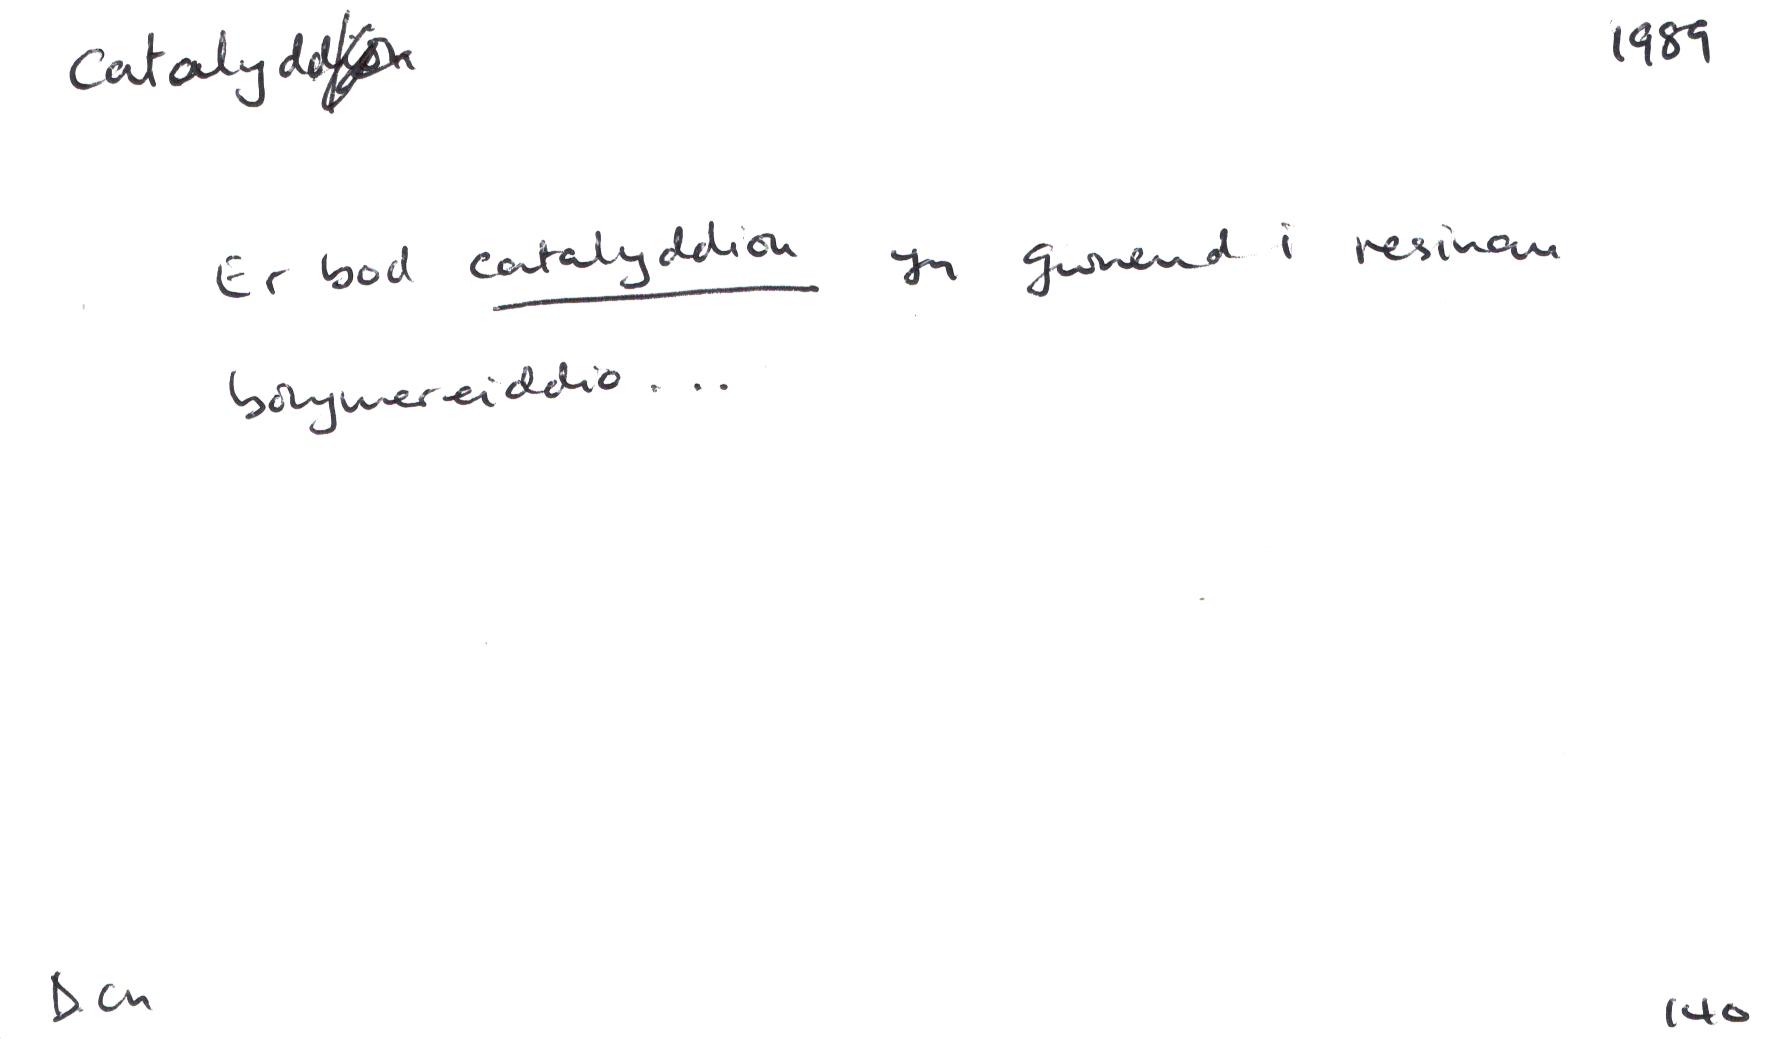 Catalydd 1989
Er bod catalyddion yn gwneud i resinau
bolymereiddio....
D Cn 140